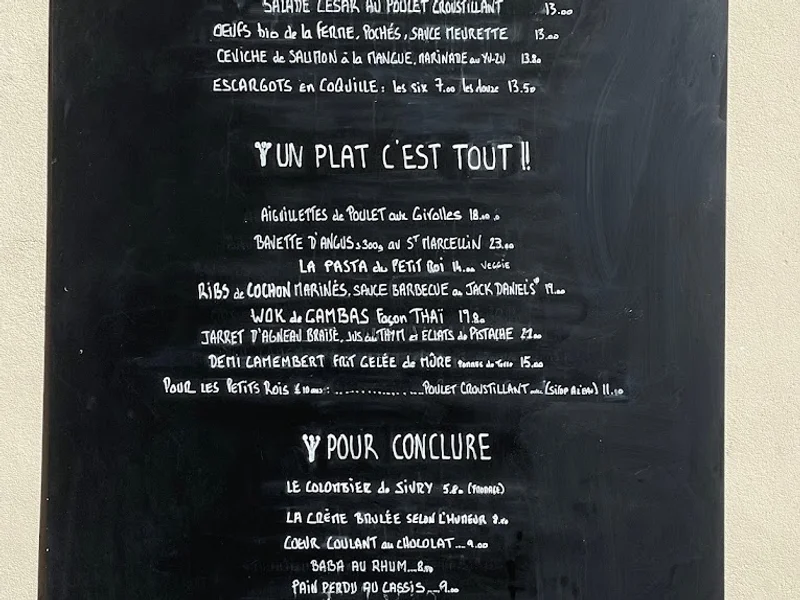 SALADE CESAR AU POULET CROUSTILLANT 13.00
OEUFS bio de la FERME, POCHÉS, SAUCE MEURETTE 13.00
CEVICHE de SAUMON à la MANGUE, MARINADE au YUZU 13.80
ESCARGOTS en COQUILLE : les six 7.00 les douze 13.50
UN PLAT C'EST TOUT !!
AIGUILLETTES de POULET aux Girolles 18.00
BAVETTE D'ANGUS ±300g au ST MARCELLIN 23.00
LA PASTA du PETIT Roi 14.00 veggie
RIBS de COCHON MARINÉS, SAUCE BARBECUE au JACK DANIELS 19.00
WOK de GAMBAS Façon THAÏ 19.80
JARRET D'AGNEAU BRAISÉ, JUS au THYM et ECLATS de PISTACHE 22.00
DEMI CAMEMBERT FRIT GELÉE de MÛRE 15.00
POUR LES PETITS Rois ≤ 10 ans : ............... POULET CROUSTILLANT (sirop à l'eau) 11.50
POUR CONCLURE
LE COLOMBIER de SIVRY 5.80 (FROMAGE)
LA CRÈME BRULÉE SELON L'HUMEUR 8.00
COEUR COULANT au CHOCOLAT...9.00
BABA AU RHUM...8.50
PAIN PERDU AU CASSIS...9.00